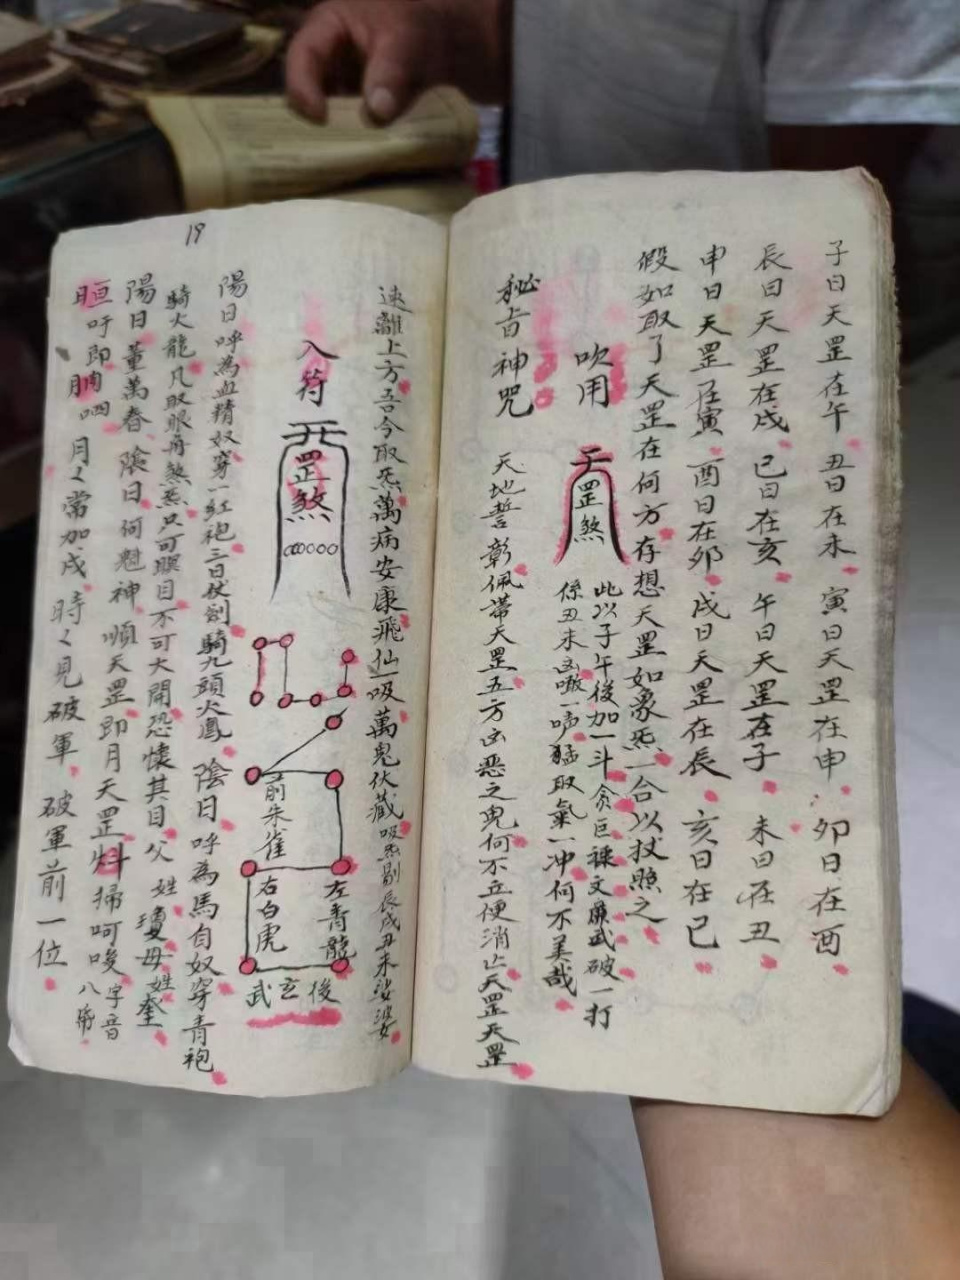 子日天罡在午 丑日在未 寅日天罡在申 卯日在酉
辰日天罡在戍 巳日在亥 午日天罡在子 未日在丑
申日天罡在寅 酉日在卯 戍日天罡在辰 亥日在巳
假如取了天罡在何方存想天罡如象炁一合以扙照之
吹用
罡煞
此以子午後加一斗貪巨禄文廉武破一打
係丑未凶噉一嗊猛取氣一冲何不美哉
秘旨神咒
天地誓彰佩帶天罡五方凶惡之鬼何不立便消亡天罡天罡
速離上方吾今取炁萬病安康飛仙一吸萬鬼伏藏吸炁剔辰戍丑未娑婆
入符
罡煞
前朱雀
左青龍
右白虎
後玄武
陽日呼為血精奴穿一紅袍三日仗劍騎九頭火鳳 陰日呼為馬自奴穿青袍
騎火龍凡取眼舟煞炁只可瞑目不可大開恐懷其目父姓瓊母姓奎
陽日董萬春 陰日何魁神順天罡即月天罡㪵掃呵唆字音
吁即 月々常加戍 時々見破軍 破軍前一位
19